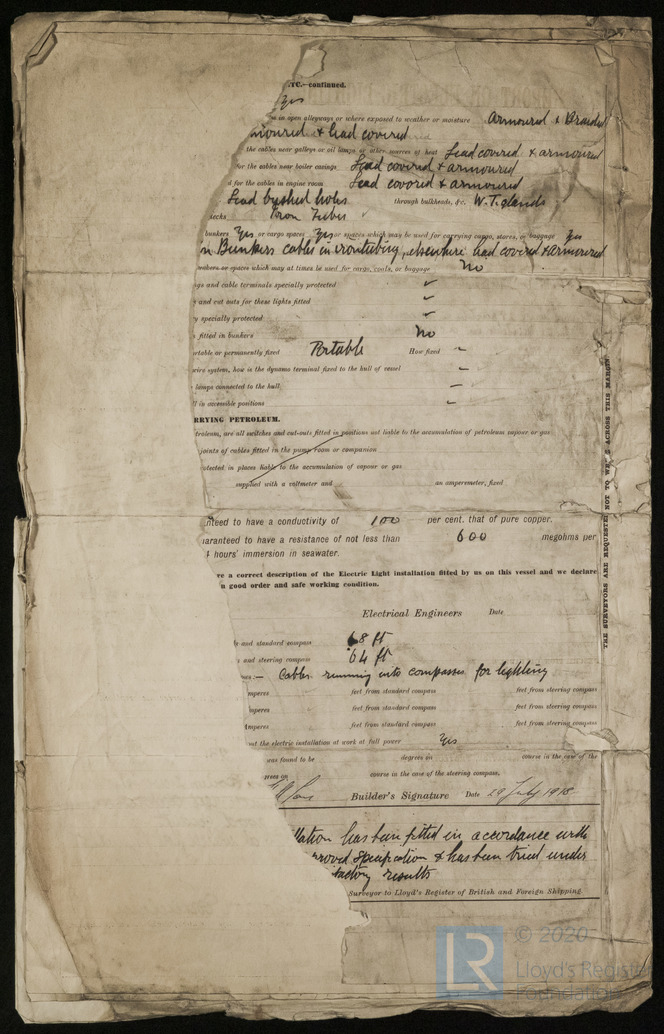 TC.—continued.
Yes
in open alleyways or where exposed to weather or moisture Armoured & Braided
moured & lead covered
the cables near galleys or oil lamps or other sources of heat Lead covered & armoured
for the cables near boiler casings Lead covered & armoured
d for the cables in engine room Lead covered & armoured
Lead bushed holes through bulkheads, &c. W.T. glands
ecks Iron Tubes
bunkers Yes or cargo spaces Yes or spaces which may be used for carrying cargo, stores, or baggage Yes
n Bunkers cables in iron tubing, elsewhere lead covered & armoured
unkers or spaces which may at times be used for cargo, coals, or baggage No
gs and cable terminals specially protected
y and cut outs for these lights fitted
y specially protected
s fitted in bunkers No
ortable or permanently fixed Portable How fixed –
wire system, how is the dynamo terminal fixed to the hull of vessel –
lamps connected to the hull –
ll in accessible positions –
RRYING PETROLEUM.
troleum, are all switches and cut-outs fitted in positions not liable to the accumulation of petroleum vapour or gas
joints of cables fitted in the pump room or companion
rotected in places liable to the accumulation of vapour or gas
supplied with a voltmeter and an amperemeter, fixed
nteed to have a conductivity of 100 per cent. that of pure copper.
uaranteed to have a resistance of not less than 600 megohms per
4 hours' immersion in seawater.
ve a correct description of the Electric Light installation fitted by us on this vessel and we declare
n good order and safe working condition.
Electrical Engineers Date
and standard compass 68 ft
and steering compass 64 ft
:— Cables running into compasses for lighting
mperes feet from standard compass feet from steering compass
mperes feet from standard compass feet from steering compass
mperes feet from standard compass feet from steering compass
ut the electric installation at work at full power Yes
was found to be degrees on course in the case of the
rees on course in the case of the steering compass.
Builder's Signature Date 29 July 1918
llation has been fitted in accordance with
proved Specification & has been tried under
factory results
Surveyor to Lloyd's Register of British and Foreign Shipping.
THE SURVEYORS ARE REQUESTED NOT TO WRITE ACROSS THIS MARGIN
LR
© 2020
Lloyd's Register
Foundation